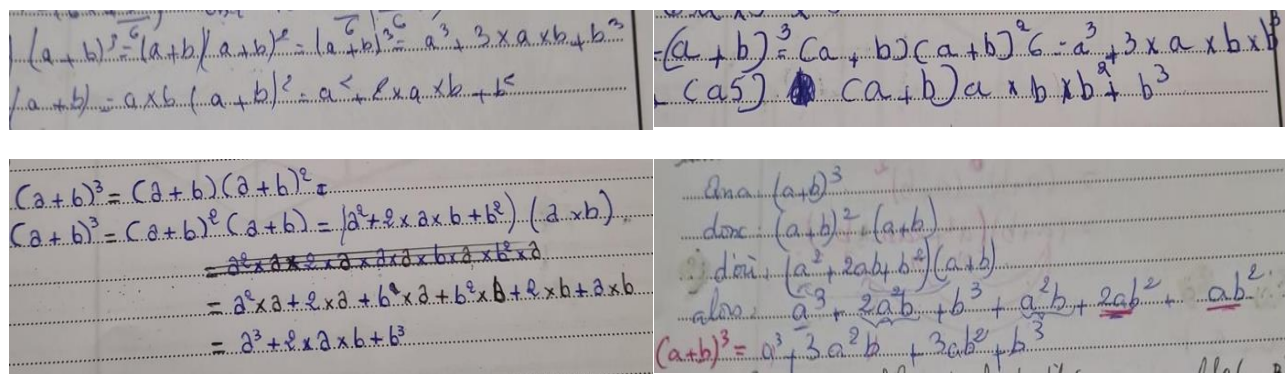 (a+b)³ = (a+b)(a+b)² = (a+b)³ = a³ + 3×a×b + b³
(a+b) = a×b (a+b)² = a² + 2×a×b + b²
=(a+b)³ = (a+b)(a+b)² 6 = a³ + 3×a×b×b
(a5) (a+b)a × b × b² + b³
(a+b)³ = (a+b)(a+b)² =
(a+b)³ = (a+b)² (a+b) = (a²+2×a×b+b²) (a×b)
= a²×a + 2×a + b²×a + b²×b + 2×b + a×b
= a³ + 2×a×b + b³
Ona: (a+b)³
donc: (a+b)² · (a+b)
d'où: (a² + 2ab + b²)(a+b)
alors: a³ + 2a²b + b³ + a²b + 2ab² + ab²
(a+b)³ = a³ + 3a²b + 3ab² + b³